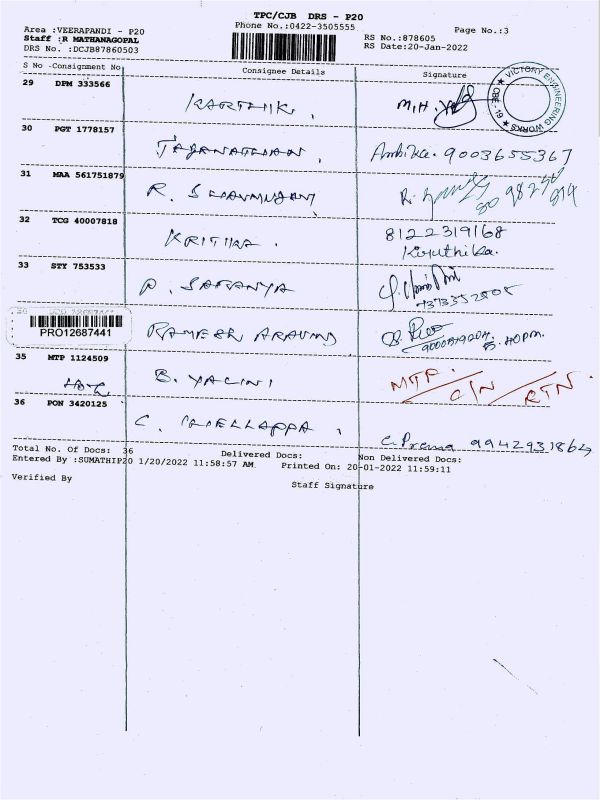 TPC/CJB DRS - P20
Phone No.:0422-3505555
Page No.:3
Area :VEERAPANDI - P20
Staff :R MATHANAGOPAL
DRS No. :DCJB87860503
RS No.:878605
RS Date:20-Jan-2022
S No -Consignment No
Consignee Details
Signature
VICTORY ENGINEERING WORKS ★ CBE-19 ★
29 DPM 333566
KARTHIK.
M.H.
30 PGT 1778157
JAGANATHAN.
Ambika. 9003655367
31 MAA 561751879
R.
R.
32 TCG 40007818
KRITHIKA.
8122319168
Kiruthika.
33 STY 753533
P. SARANYA
7373552505
PRO12687441
RAMESH ARAVIND
35 MTP 1124509
B. YALINI
MTP. C/N / RTN.
36 PON 3420125
C. CHELLAPPA.
C. Prema 9942931864
Total No. Of Docs: 36
Delivered Docs:
Non Delivered Docs:
Entered By :SUMATHIP20 1/20/2022 11:58:57 AM
Printed On: 20-01-2022 11:59:11
Verified By
Staff Signature